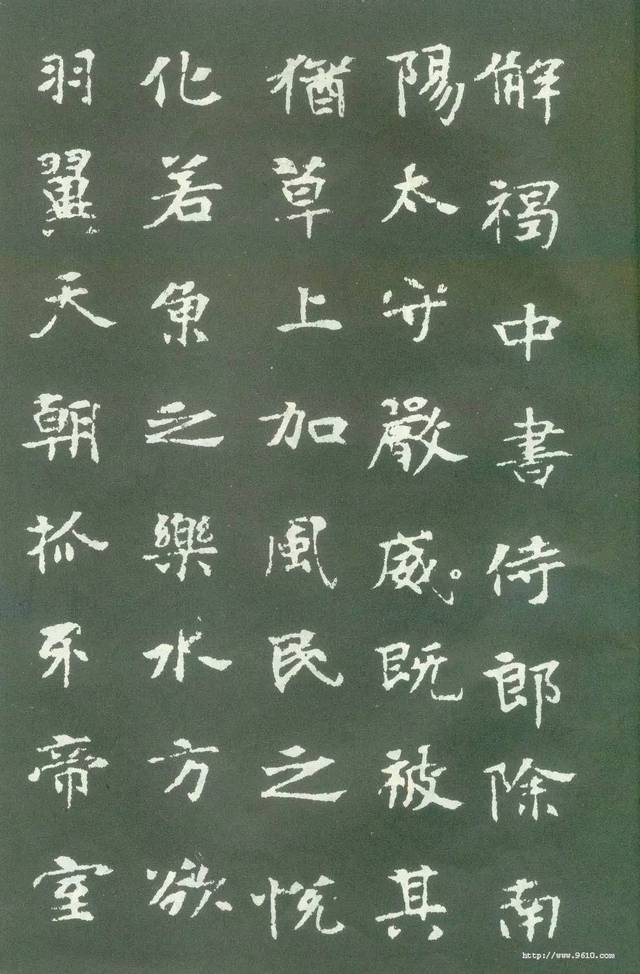 解褐中書侍郎除南
陽太守嚴威。既被其
猶草上加風民之悅
化若魚之樂水方欲
羽翼天朝抓牙帝室
http://www.9610.com